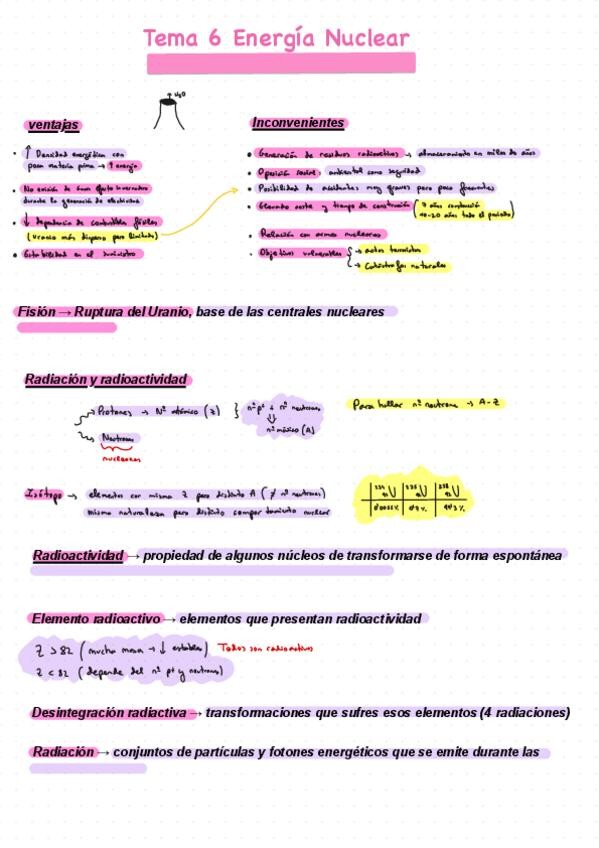 Tema 6 Energía Nuclear
H₂O
ventajas
↑ Densidad energética con
poca materia prima → ↑ energía
No emisión de gases efecto invernadero
durante la generación de electricidad
↓ dependencia de combustibles fósiles
(uranio más disperso pero limitado)
Estabilidad en el suministro
Inconvenientes
Generación de residuos radioactivos → almacenamiento en miles de años
Oposición social: ambiental como seguridad
Posibilidad de accidentes muy graves pero poco frecuentes
Elevado coste y tiempo de construcción (7 años construcción
10-20 años todo el periodo)
Relación con armas nucleares
Objetivos vulnerables → actos terroristas
→ Catástrofes naturales
Fisión → Ruptura del Uranio, base de las centrales nucleares
Radiación y radioactividad
Protones → Nº atómico (Z) } nº p⁺ + nº neutrones
Neutrones
nucleones
nº másico (A)
Para hallar nº neutrones → A-Z
Isótopo → elementos con mismo Z pero distinto A (≠ nº neutrones)
misma naturaleza pero distinto comportamiento nuclear
234 92 U | 235 92 U | 238 92 U
0'0055% | 0'7% | 99'3%
Radioactividad → propiedad de algunos núcleos de transformarse de forma espontánea
Elemento radioactivo → elementos que presentan radioactividad
Z > 82 (mucha masa → ↓ estables) Todos son radioactivos
Z < 82 (depende del nº p⁺ y neutrones)
Desintegración radiactiva → transformaciones que sufres esos elementos (4 radiaciones)
Radiación → conjuntos de partículas y fotones energéticos que se emite durante las